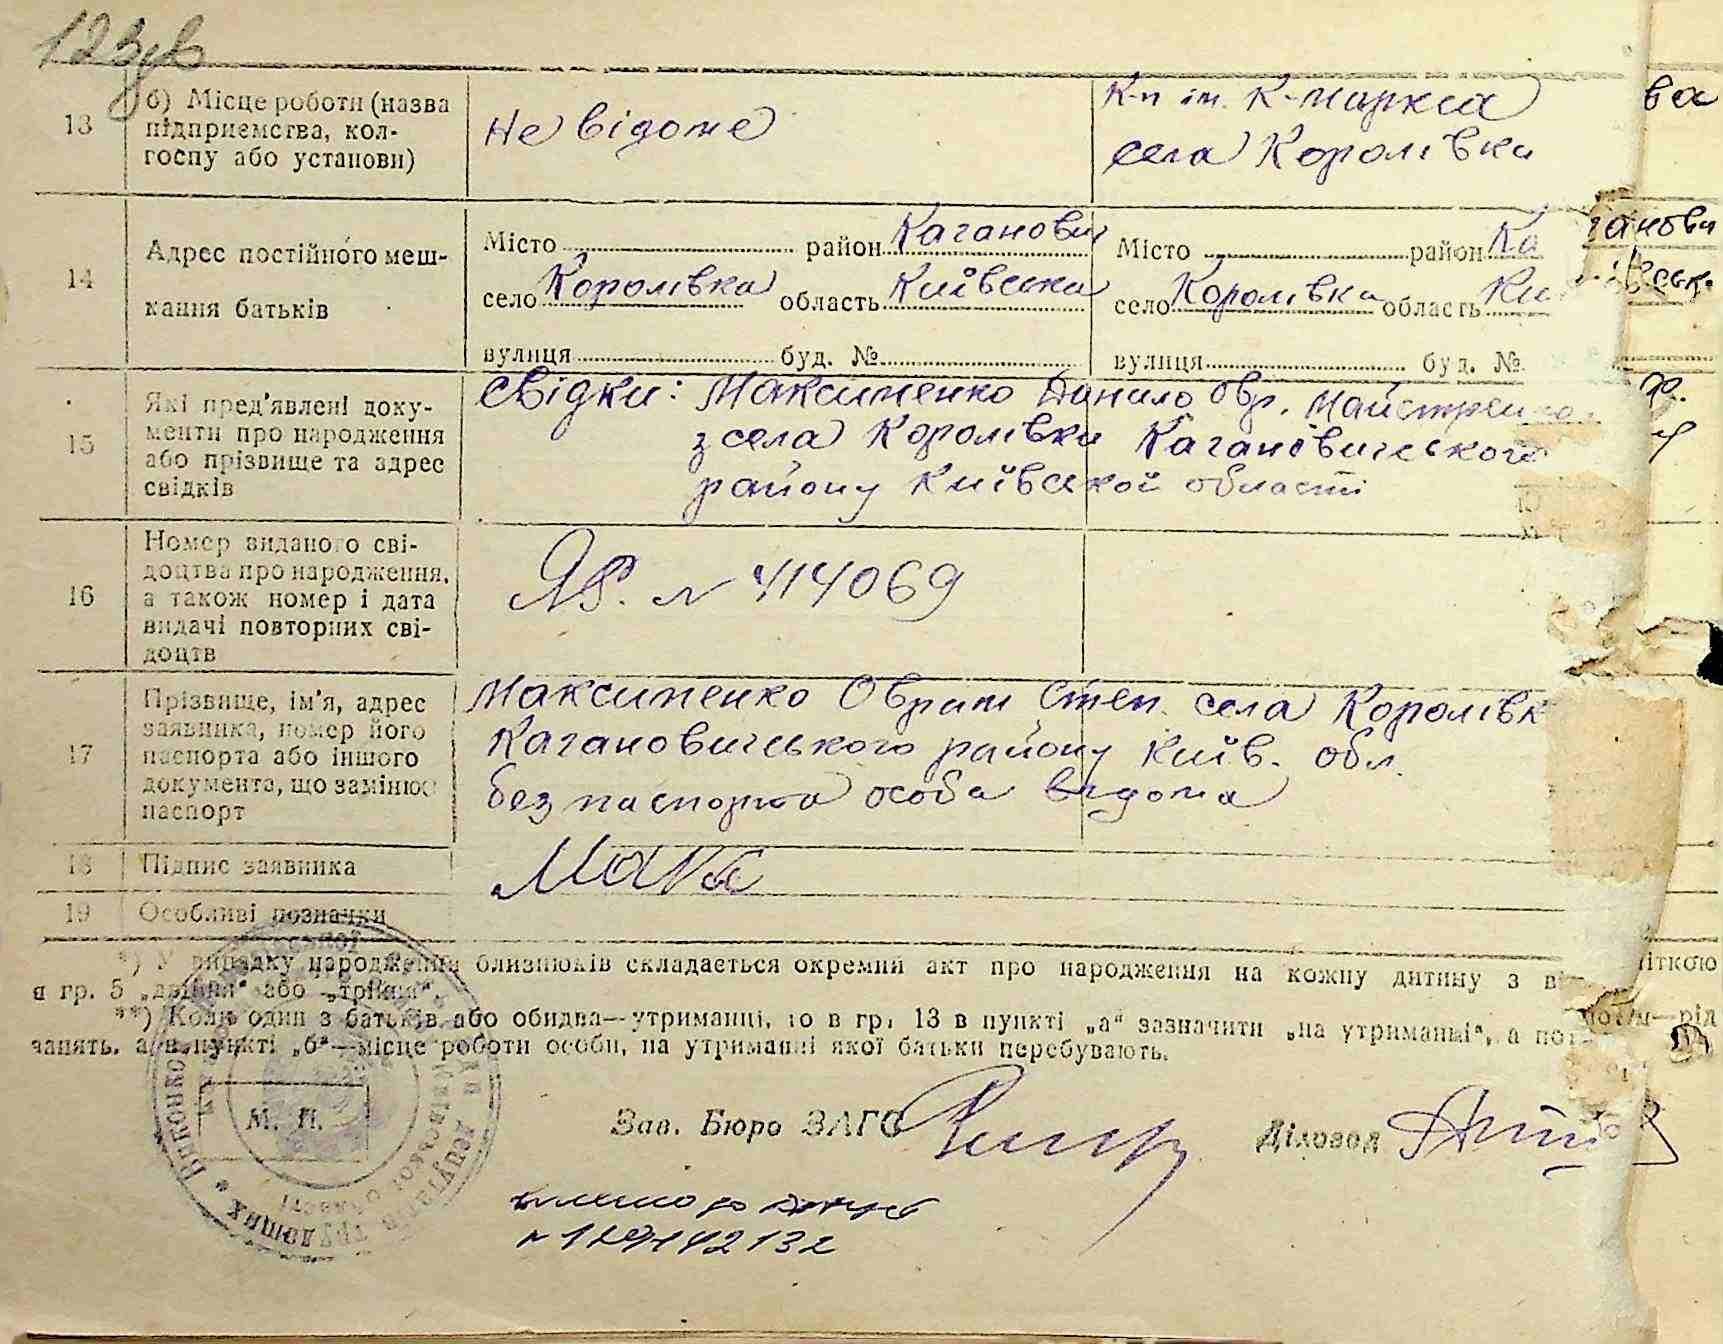 123зв
13
б) Місце роботи (назва
підприємства, кол-
госпу або установи)
Не відоме
К-п ім. К-Маркса
села Королівки
ва
14
Адрес постійного меш-
кання батьків
Місто район Каганович
село Королівка область Київська
вулиця буд. №
Місто район Ка
село Королівка область Ки
вулиця буд. №
ганови
ївськ.
15
Які пред'явлені доку-
менти про народження
або прізвище та адрес
свідків
Свідки: Максименко Данило Овр. Майстренко
з села Королівки Кагановичського
району Київської області
16
Номер виданого сві-
доцтва про народження,
а також номер і дата
видачі повторних сві-
доцтв
ЯБ. № 414069
17
Прізвище, ім'я, адрес
заявника, номер його
паспорта або іншого
документа, що замінює
паспорт
Максименко Оврам Степ. села Королівк
Кагановичського району Київ. обл.
без паспорта особа відома
18
Підпис заявника
Макс
19
Особливі позначки
*) У випадку народження близнюків складається окремий акт про народження на кожну дитину з ві іткою
в гр. 5 „двійня“ або „трійня“.
**) Коли один з батьків або обидва—утриманці, то в гр. 13 в пункті „а“ зазначити „на утриманні“, а пот рід
занять, а в пункті „б“—місце роботи особи, на утриманні якої батьки перебувають.
М. П.
Зав. Бюро ЗАГС
Діловод